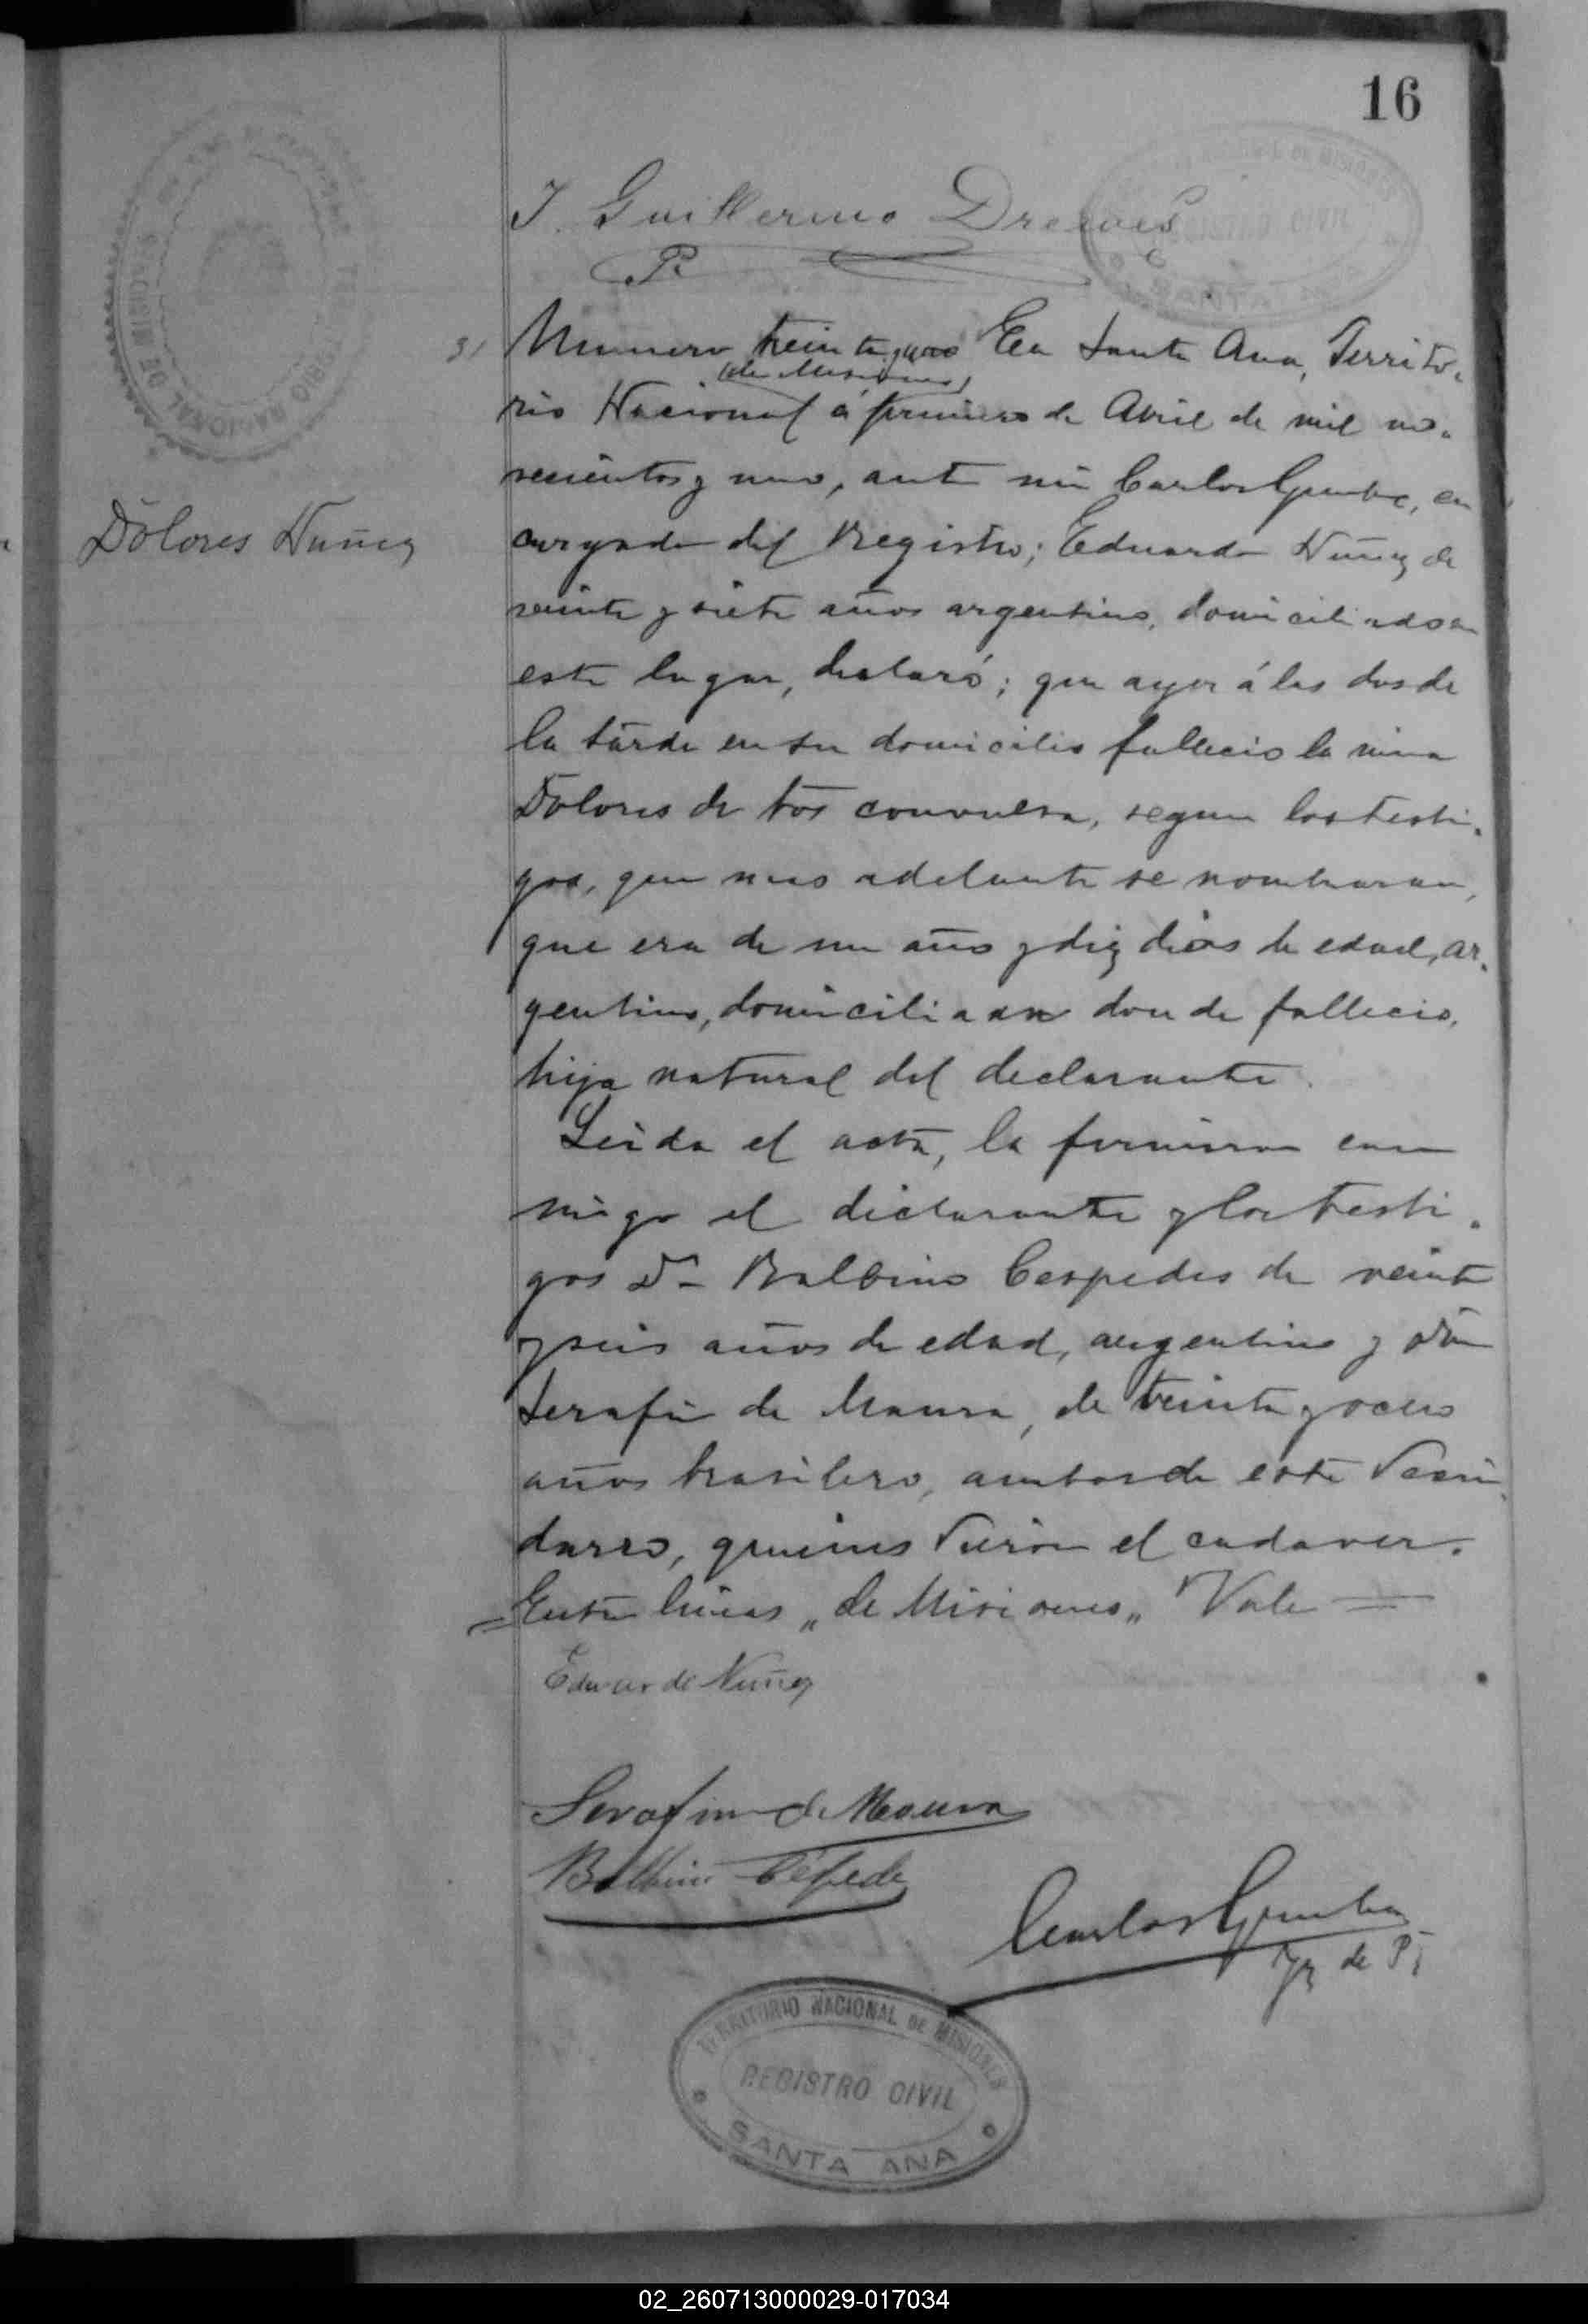 16
J. Guillermo Drewes
P.
TERRITORIO NACIONAL
REGISTRO CIVIL
SANTA ANA
31 Numero treinta y uno En Santa Ana, Territo-
(de Misiones)
rio Nacional á primero de Abril de mil no-
vecientos y uno, ante mi Carlos en
Dolores Nuñez
cargado del Registro; Eduardo Nuñez de
veinte y siete años argentino, domiciliado en
este lugar, declaró; que ayer á las dos de
la tarde en su domicilio fallecio la nina
Dolores de tos convulsa, segun los testi-
gos, que mas adelante se nombraran,
que era de un año y diez dias de edad, ar-
gentino, domiciliada donde fallecio,
hija natural del declarante.
Leida el acta, la firmaron con
migo el declarante y los testi-
gos Dn Balbino Cespedes de veinte
y seis años de edad, argentino y Don
Serafin de Moura, de treinta y ocho
años brasilero, ambos de este Vecin
dario, quienes vieron el cadaver.
=Entre lineas „de Misiones„ Vale=
Eduardo Nuñez
Serafim de Moura
Balbino Céspede
Carlos
Jz de P.
TERRITORIO NACIONAL DE MISIONES
REGISTRO CIVIL
SANTA ANA
02_260713000029-017034